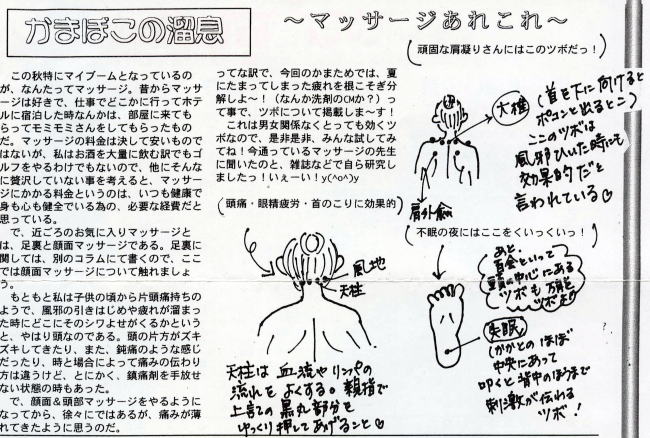 かまぼこの溜息
～マッサージあれこれ～
この秋特にマイブームとなっているの
が、なんたってマッサージ。昔からマッサ
ージは好きで、仕事でどこかに行ってホテ
ルに宿泊した時なんかは、部屋に来ても
らってモミモミさんをしてもらったもの
だ。マッサージの料金は決して安いもので
はないが、私はお酒を大量に飲む訳でもゴ
ルフをやるわけでもないので、他にそんな
に贅沢していない事を考えると、マッサー
ジにかかる料金というのは、いつも健康で
身も心も健全でいる為の、必要な経費だと
思っている。
で、近ごろのお気に入りマッサージと
は、足裏と顔面マッサージである。足裏に
関しては、別のコラムにて書くので、ここ
では顔面マッサージについて触れましょ
う。
もともと私は子供の頃から片頭痛持ちの
ようで、風邪の引きはじめや疲れが溜まっ
た時にどこにそのシワよせがくるかという
と、やはり頭なのである。頭の片方がズキ
ズキしてきたり、また、鈍痛のような感じ
だったり、時と場合によって痛みの伝わり
方は違うけど、とにかく、鎮痛剤を手放せ
ない状態の時もあった。
で、顔面＆頭部マッサージをやるように
なってから、徐々にではあるが、痛みが薄
れてきたように思うのだ。
ってな訳で、今回のかまためでは、夏
にたまってしまった疲れを根こそぎ分
解しよ～！（なんか洗剤のCMか？）っ
て事で、ツボについて掲載しま～す！
これは男女関係なくとっても効くツ
ボなので、是非是非、みんな試してみ
てね！今通っているマッサージの先生
に聞いたのと、雑誌などで自ら研究し
ましたっ！いぇ～い！y(^o^)y
頭痛・眼精疲労・首のこりに効果的
風地
天柱
天柱は血流やリンパの
流れをよくする。親指で
上記の黒丸部分を
ゆっくり押してあげること♡
頑固な肩凝りさんにはこのツボだっ！
大椎
（首を下に向けると
ポコンと出るとこ）
ここのツボは
風邪ひいた時にも
効果的だと
言われている♡
肩外兪
不眠の夜にはここをくいっくいっ！
あと、
百会といって
頭の中心にある
ツボも万能
ツボよ♡
失眠
（かかとのほぼ
中央にあって
叩くと背中のほうまで
刺激が伝わる
ツボ！